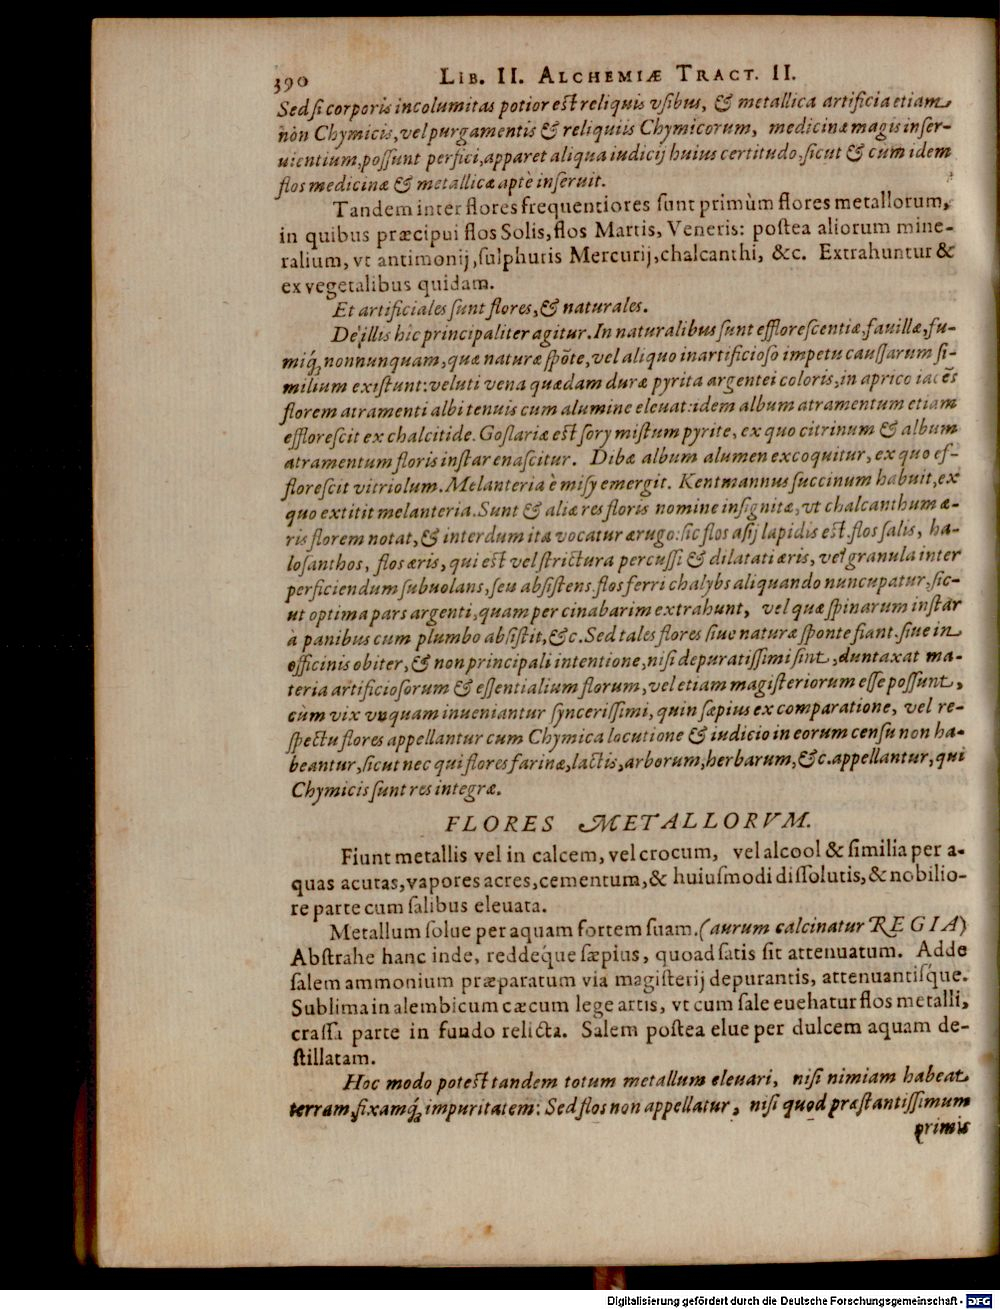 390 LIB. II. ALCHEMIÆ TRACT. II.
Sed si corporis incolumitas potior est reliquis vsibus, & metallica artificia etiam
nòn Chymicis, vel purgamentis & reliquiis Chymicorum, medicinæ magis inser-
uientium, possunt perfici, apparet aliqua iudicij huius certitudo, sicut & cum idem
flos medicinæ & metallicæ aptè inseruit.
Tandem inter flores frequentiores sunt primùm flores metallorum,
in quibus præcipui flos Solis, flos Martis, Veneris: postea aliorum mine-
ralium, vt antimonij, sulphuris Mercurij, chalcanthi, &c. Extrahuntur &
ex vegetalibus quidam.
Et artificiales sunt flores, & naturales.
De illis hîc principaliter agitur. In naturalibus sunt efflorescentiæ, fauillæ, fu-
miq́; nonnunquam, quæ naturæ spõte, vel aliquo inartificioso impetu caussarum si-
milium existunt: veluti vena quædam duræ pyritæ argentei coloris, in aprico iacẽs
florem atramenti albi tenuis cum alumine eleuat: idem album atramentum etiam
efflorescit ex chalcitide. Goslariæ est sory mistum pyrite, ex quo citrinum & album
atramentum floris instar enascitur. Dibæ album alumen excoquitur, ex quo ef-
florescit vitriolum. Melanteria è misy emergit. Kentmannus succinum habuit, ex
quo extitit melanteria. Sunt & aliæ res floris nomine insignitæ, vt chalcanthum æ-
ris florem notat, & interdum ita vocatur ærugo: sic flos asij lapidis est flos salis, ha-
losanthos, flos æris, qui est vel strictura percussi & dilatati æris, vel granula inter
perficiendum subuolans, seu absistens. flos ferri chalybs aliquando nuncupatur, sic-
ut optima pars argenti, quam per cinabarim extrahunt, vel quæ spinarum instar
à panibus cum plumbo absistit, &c. Sed tales flores siue naturæ sponte fiant, siue in
officinis obiter, & non principali intentione, nisi depuratissimi sint, duntaxat ma-
teria artificiosorum & essentialium florum, vel etiam magisteriorum esse possunt,
cùm vix vnquam inueniantur syncerissimi, quin sæpius ex comparatione, vel re-
spectu flores appellantur cum Chymica locutione & iudicio in eorum censu non ha-
beantur, sicut nec qui flores farinæ, lactis, arborum, herbarum, &c. appellantur, qui
Chymicis sunt res integræ.
FLORES METALLORVM.
Fiunt metallis vel in calcem, vel crocum, vel alcool & similia per a-
quas acutas, vapores acres, cementum, & huiusmodi dissolutis, & nobilio-
re parte cum salibus eleuata.
Metallum solue per aquam fortem suam. (aurum calcinatur REGIA)
Abstrahe hanc inde, reddeq́ue sæpius, quoad satis sit attenuatum. Adde
salem ammonium præparatum via magisterij depurantis, attenuantisq́ue.
Sublima in alembicum cæcum lege artis, vt cum sale euehatur flos metalli,
crassa parte in fundo relicta. Salem postea elue per dulcem aquam de-
stillatam.
Hoc modo potest tandem totum metallum eleuari, nisi nimiam habeat
terram, fixamq́; impuritatem: Sed flos non appellatur, nisi quod præstantissimum
primis
Digitalisierung gefördert durch die Deutsche Forschungsgemeinschaft - DFG